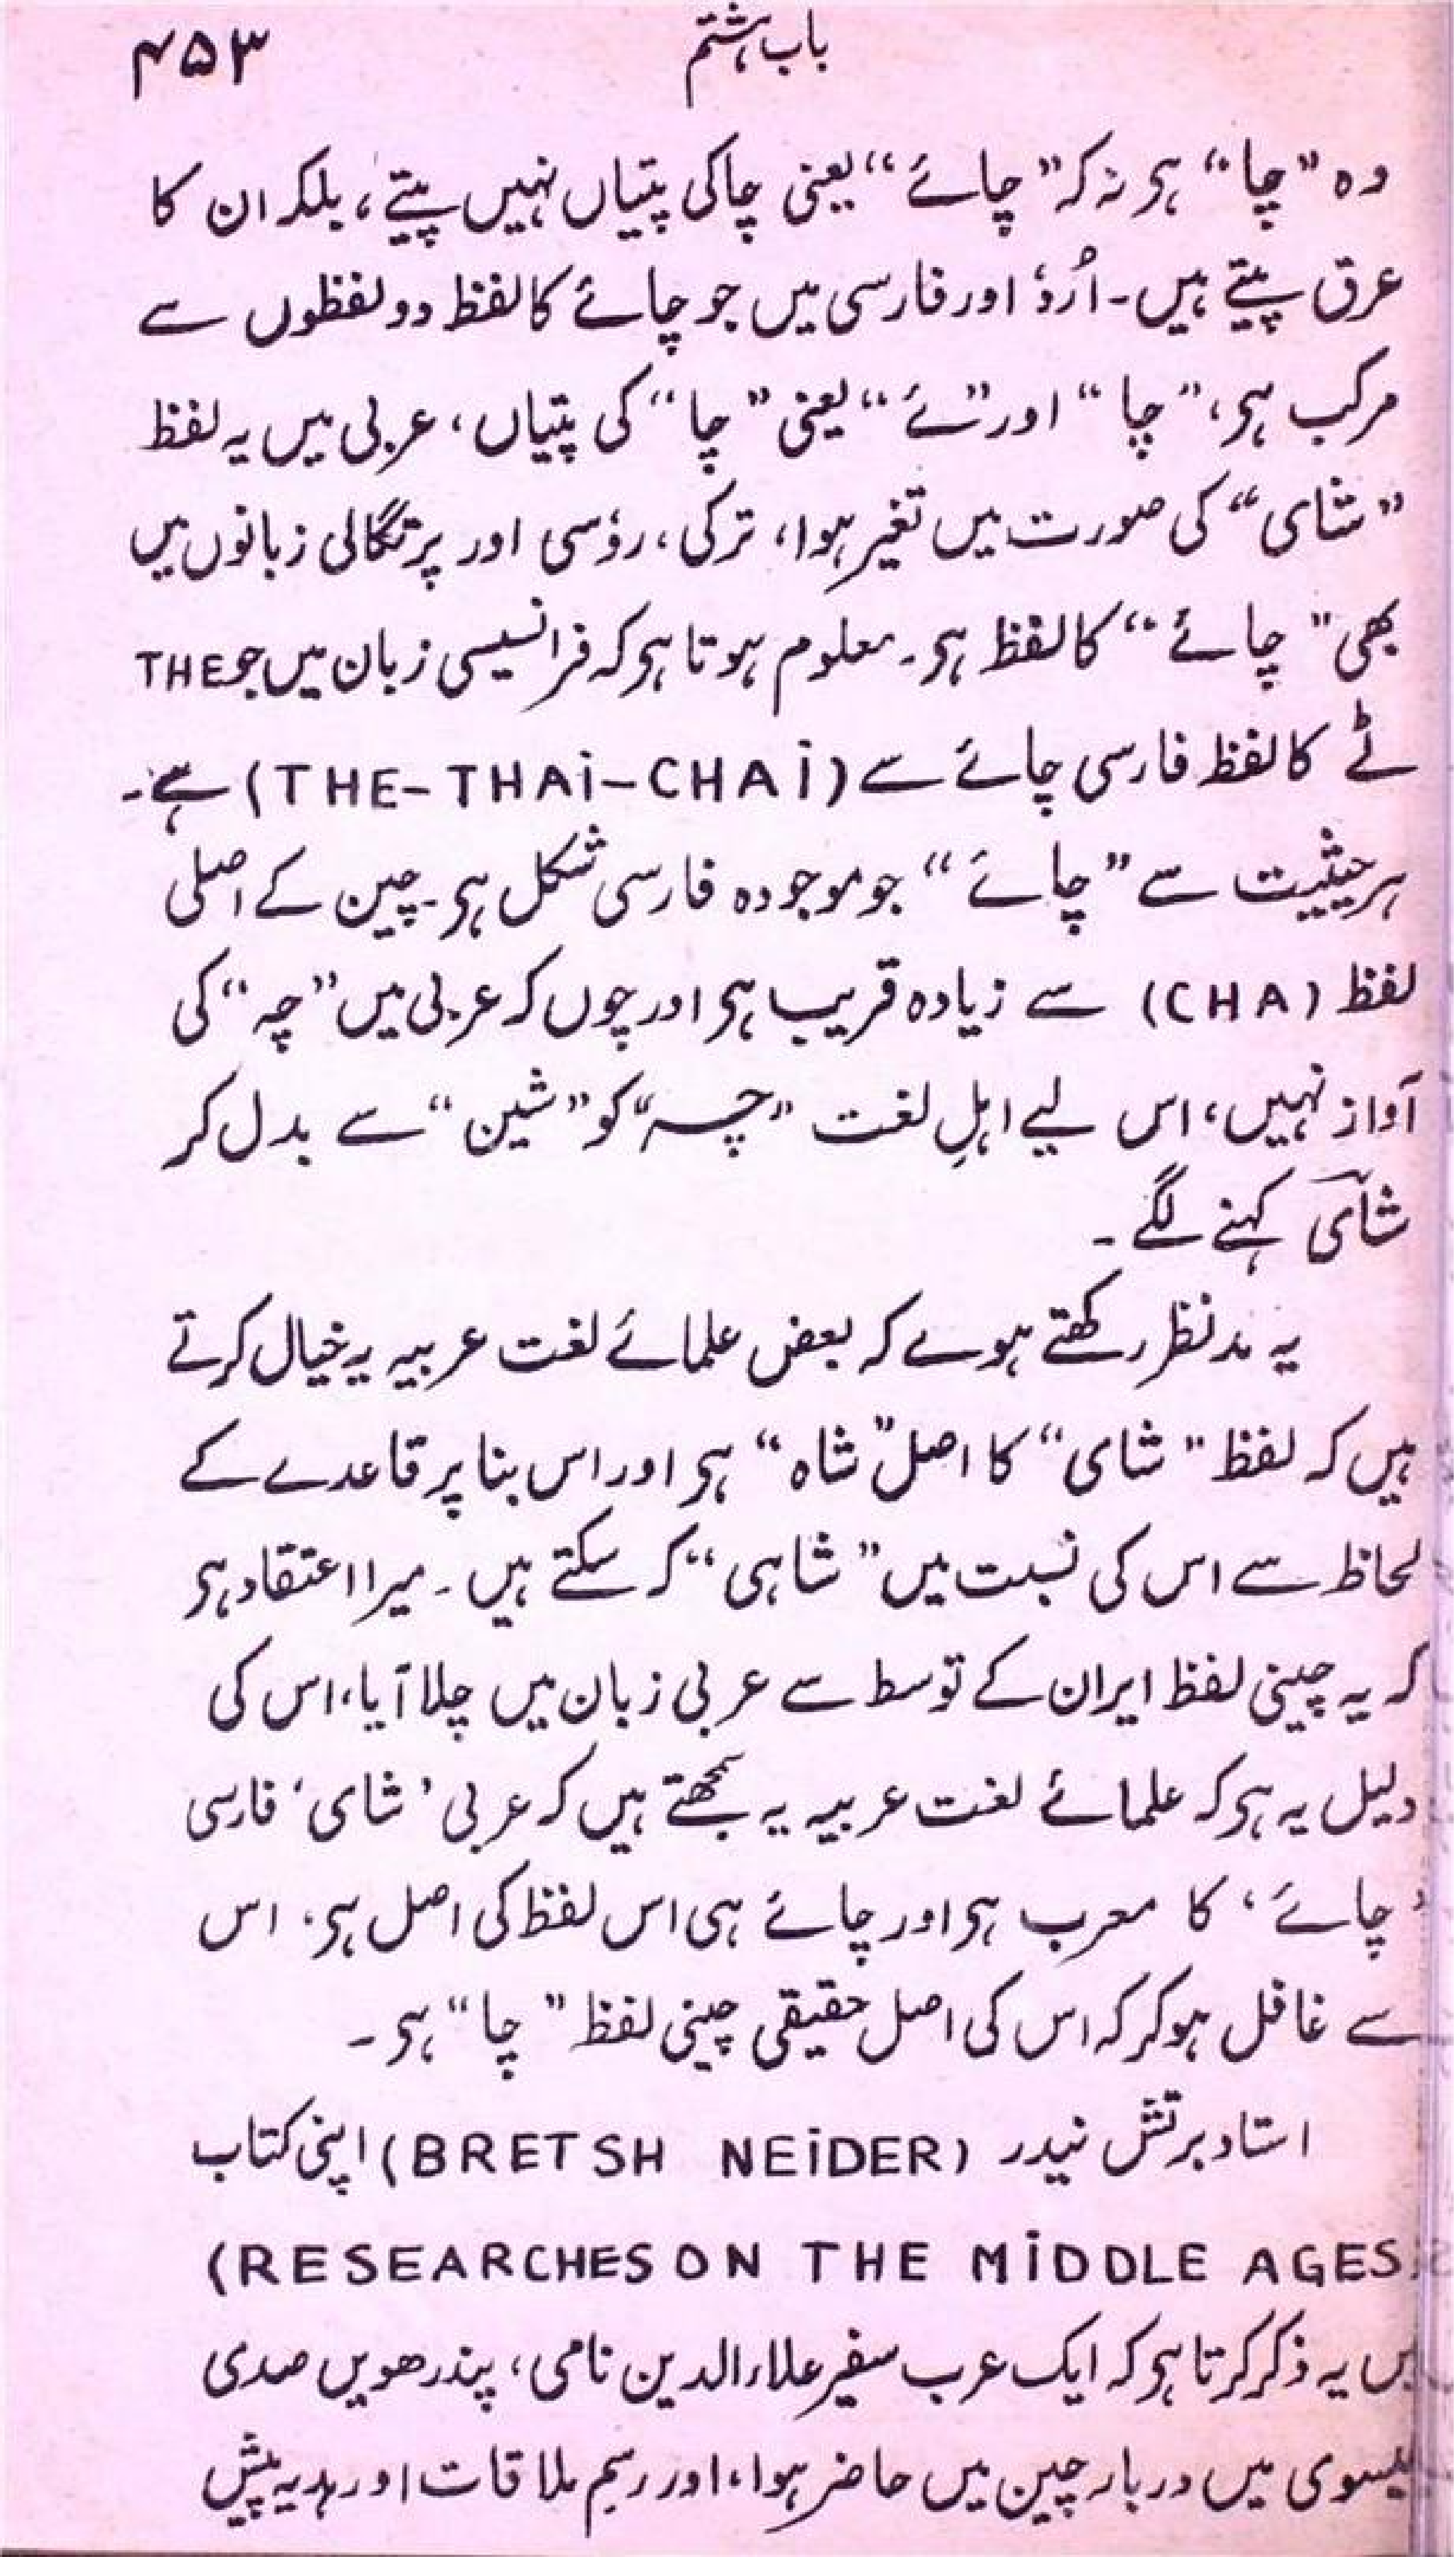 باب ہشتم
۴۵۳
وہ "چا" ہی نہ کہ "چائے" یعنی چا کی پتیاں نہیں پیتے، بلکہ ان کا
عرق پیتے ہیں۔ اُردوٗ اور فارسی میں جو چائے کا لفظ دو لفظوں سے
مرکب ہی، "چا" اور "ئے" یعنی "چا" کی پتیاں، عربی میں یہ لفظ
"شای" کی صورت میں تغیر ہوا، ترکی، روٗسی اور پرتگالی زبانوں میں
بھی "چائے" کا لفظ ہی۔ معلوم ہوتا ہی کہ فرانسیسی زبان میں جو THE
ٹے کا لفظ فارسی چائے سے (THE-THAi-CHAi) ہے۔
ہر حیثیت سے "چائے" جو موجودہ فارسی شکل ہی۔ چین کے اصلی
لفظ (CHA) سے زیادہ قریب ہی اور چوں کہ عربی میں "چہ" کی
آواز نہیں، اس لیے اہلِ لغت "چہ" کو "شین" سے بدل کر
شآی کہنے لگے۔
یہ مدنظر رکھتے ہوے کہ بعض علمائے لغت عربیہ یہ خیال کرتے
ہیں کہ لفظ "شای" کا اصل "شاہ" ہی اور اس بنا پر قاعدے کے
لحاظ سے اس کی نسبت میں "شاہی" کر سکتے ہیں۔ میرا اعتقاد ہی
کہ یہ چینی لفظ ایران کے توسط سے عربی زبان میں چلا آیا، اس کی
دلیل یہ ہی کہ علمائے لغت عربیہ یہ سمجھتے ہیں کہ عربی 'شای' فارسی
'چائے' کا معرب ہی اور چائے ہی اس لفظ کی اصل ہی، اس
سے غافل ہو کر کہ اس کی اصل حقیقی چینی لفظ "چا" ہی۔
استاد برتش نیدر (BRETSH NEiDER) اپنی کتاب
(RESEARCHES ON THE MiDDLE AGES)
میں یہ ذکر کرتا ہی کہ ایک عرب سفیر علاء الدین نامی، پندرھویں صدی
عیسوی میں دربار چین میں حاضر ہوا، اور رسم ملاقات اور ہدیہ پیش